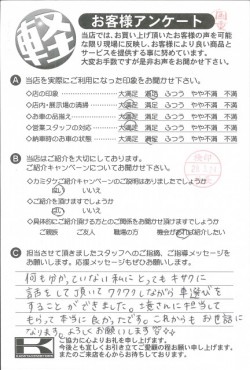 軽
お客様アンケート
当店では、お買い上げ頂いたお客様の声を可能
な限り現場に反映し、お客様により良い商品と
サービスを提供する事に努めております。
大変お手数ですが是非お声をお聞かせ下さい。
A 当店を実際にご利用になった印象をお聞かせ下さい。
◇店の印象 大満足 満足 ふつう やや不満 不満
◇店内・展示場の清掃 大満足 満足 ふつう やや不満 不満
◇お車の品揃え 大満足 満足 ふつう やや不満 不満
◇営業スタッフの対応 大満足 満足 ふつう やや不満 不満
◇納車時のお車の状態 大満足 満足 ふつう やや不満 不満
B 当店はご紹介を大切にしております。
ご紹介キャンペーンについてお聞かせ下さい。
◇カミタケご紹介キャンペーンのご説明はありましたでしょうか
はい いいえ
◇ご紹介を頂けますでしょうか
はい いいえ
◇具体的にご紹介頂ける方とのご関係をお聞かせ頂けますでしょうか
ご親族 ご友人 職場の方 機会があれば紹介したい
C 担当させて頂きましたスタッフへのご指摘、ご指導メッセージを
お願いします。応援メッセージもぜひお願いします。
何も分かっていない私にとってもキサクに
話をして頂いてワクワクしながら車選びを
することができました。
もらって本当に良かったです。これからもお世話に
なります。よろしくお願いします
K
ご協力に心よりお礼を申し上げます。
今後とも宜しくお引き立てご愛顧の程お願い申し上げます。
またのご来店を心からお待ちしております。